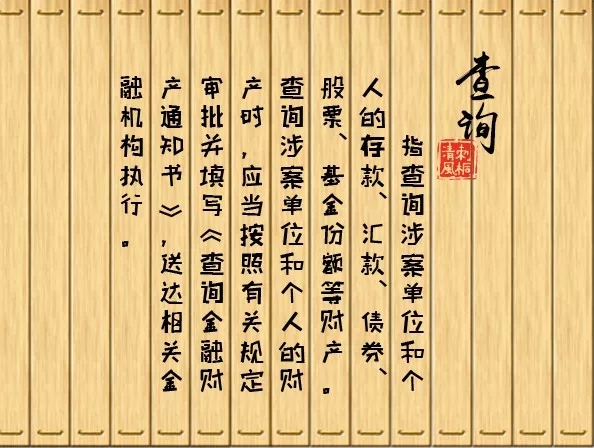 查询
刺桐
清風
指查询涉案单位和个
人的存款、汇款、债券、
股票、基金份额等财产。
查询涉案单位和个人的财
产时,应当按照有关规定
审批并填写《查询金融财
产通知书》,送达相关金
融机构执行。